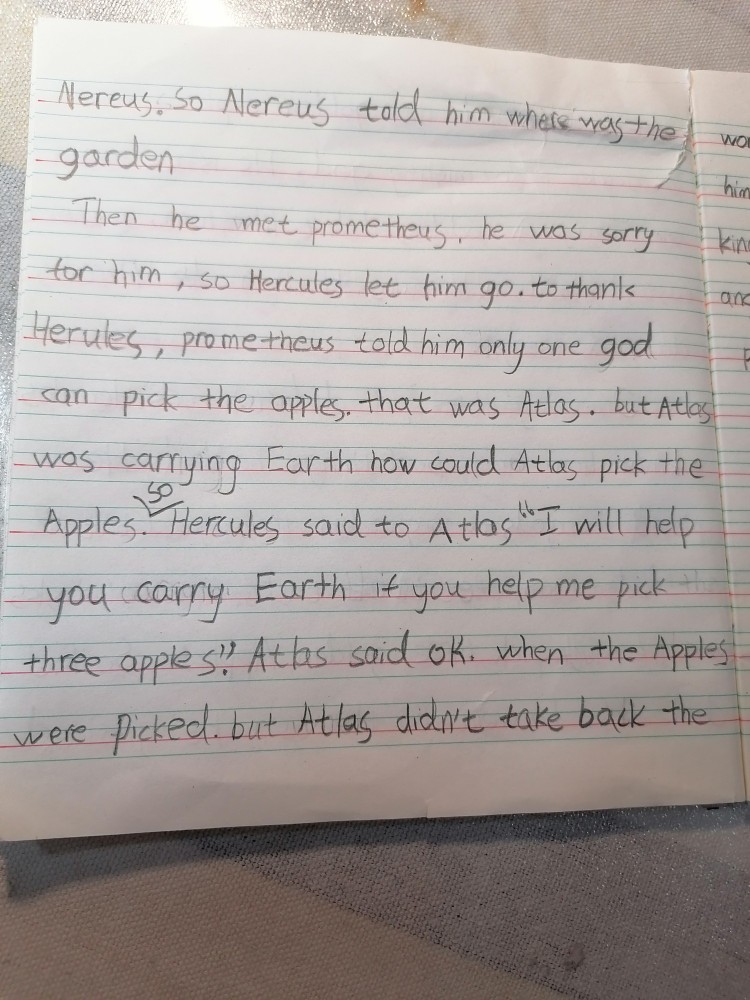 Nereus. So Nereus told him where was the
garden
Then he met prometheus. he was sorry
for him, so Hercules let him go. to thank
Herules, prometheus told him only one god
can pick the apples. that was Atlas. but Atlas
was carrying Earth how could Atlas pick the
so
Apples. Hercules said to Atlas "I will help
you carry Earth if you help me pick
three apples"! Atlas said ok. when the Apples
were picked. but Atlas didn't take back the
him